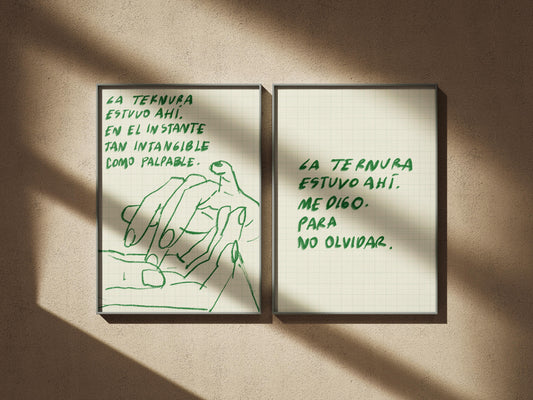 LA TERNURA
ESTUVO AHÍ.
EN EL INSTANTE
TAN INTANGIBLE
COMO PALPABLE.
LA TERNURA
ESTUVO AHÍ.
ME DIGO.
PARA
NO OLVIDAR.